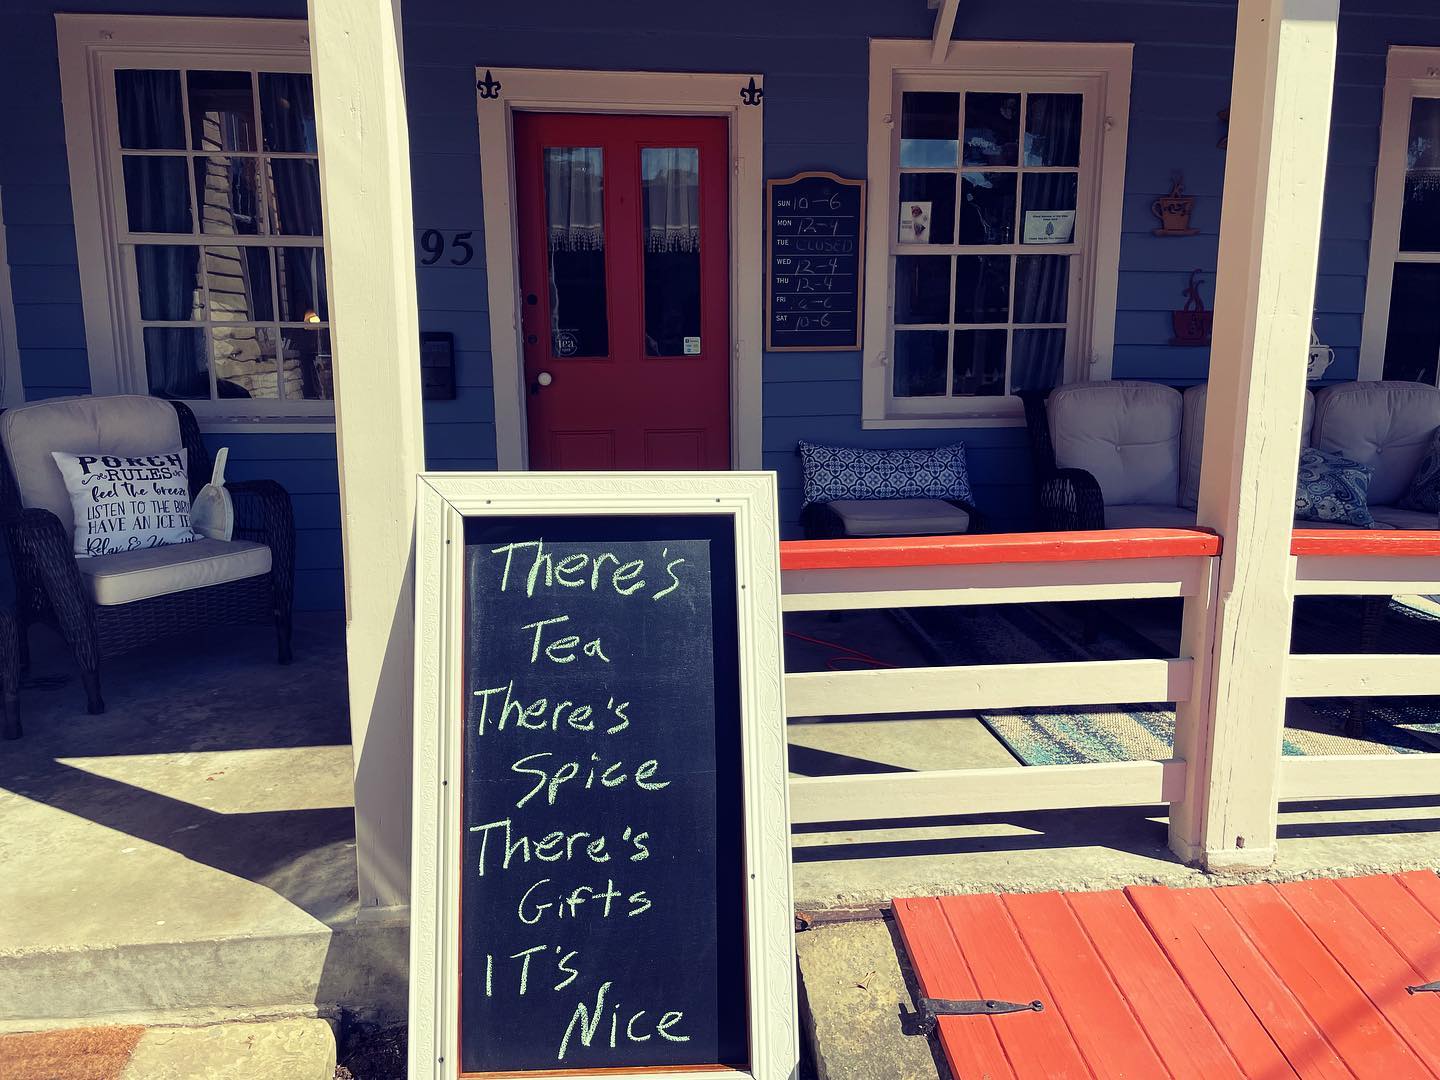 95
SUN 10-6
MON 12-4
TUE CLOSED
WED 12-4
THU 12-4
FRI
SAT 10-6
the
tea
PORCH
RULES
feel the breeze
LISTEN TO THE
HAVE AN ICE
Relax &
There's
Tea
There's
Spice
There's
Gifts
IT's
Nice